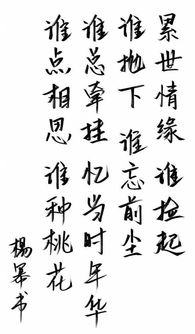 累世情缘 谁捡起
谁抛下 谁忘前尘
谁总牵挂 忆当时年华
谁点相思 谁种桃花
杨幂书